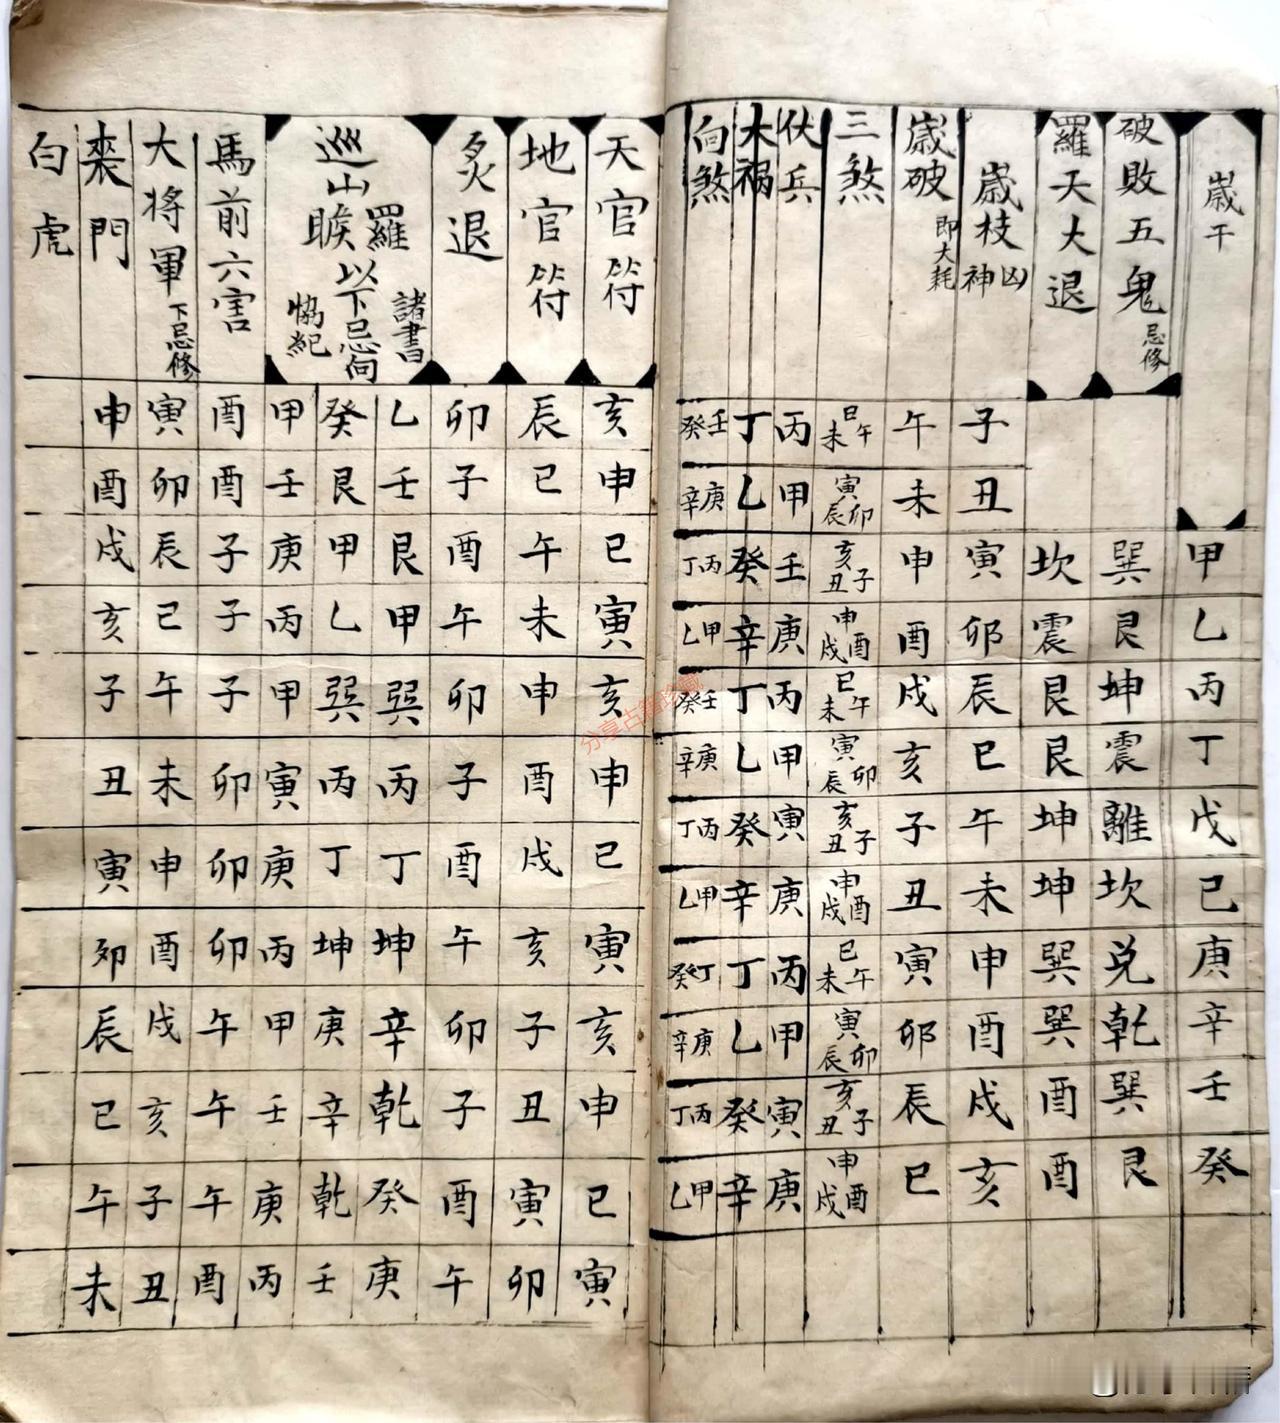 嵗干
甲乙丙丁戊己庚辛壬癸
破敗五鬼 忌修
巽艮坤震離坎兌乾巽艮
羅天大退
坎震艮艮坤坤巽巽酉酉
嵗枝凶神
子丑寅卯辰巳午未申酉戌亥
嵗破 即大耗
午未申酉戌亥子丑寅卯辰巳
三煞
巳午未 寅卯辰 亥子丑 申酉戌 巳午未 寅卯辰 亥子丑 申酉戌 巳午未 寅卯辰 亥子丑 申酉戌
伏兵
丙甲壬庚丙甲寅庚丙甲寅庚
大祸
丁乙癸辛丁乙癸辛丁乙癸辛
向煞
壬癸 庚辛 丙丁 甲乙 壬癸 庚辛 丙丁 甲乙 丁癸 庚辛 丙丁 甲乙
天官符
亥申巳寅亥申巳寅亥申巳寅
地官符
辰巳午未申酉戌亥子丑寅卯
炙退
卯子酉午卯子酉午卯子酉午
巡山羅睺 以下忌向
諸書
協紀
乙壬艮甲巽丙丁坤辛乾癸庚
癸艮甲乙巽丙丁坤庚辛乾壬
甲壬庚丙甲寅庚丙甲壬庚丙
馬前六害
酉酉子子子卯卯卯午午午酉
大将軍 下忌修
寅卯辰巳午未申酉戌亥子丑
喪門
申酉戌亥子丑寅卯辰巳午未
白虎
分享古籍珍藏